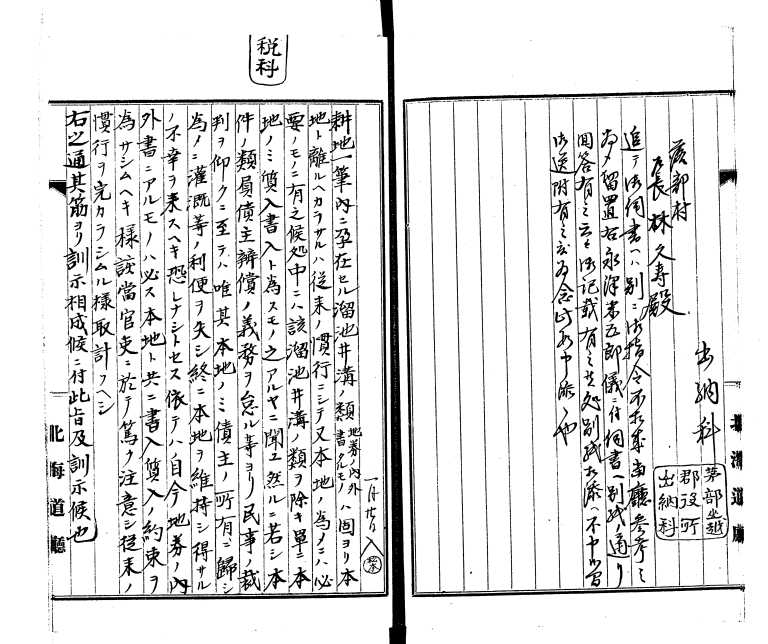 出納科
茅部山越
郡役所
出納科
茅部村
戸長林久寿殿
追テ御伺書ハ別ニ御指令不相成当庁参考ノ
為メ留置右永澤米五郎儀ニ付伺書ハ別紙ノ通リ
回答有之云々御記載有之候処別紙相添ハ不申当
御送附有之度為念此如申添候也
北海道廳
税科
一月廿五日入
耕地一筆内ニ孕在セル溜池井溝ノ類地券ノ内外書タルモノハ固ヨリ本
地ト離ルヘカラサルハ従来ノ慣行ニシテ又本地ノ為メニハ必
要ノモノニ有之候処中ニハ該溜池井溝ノ類ヲ除キ単ニ本
地ノミ質入書入ト為スモノ之アルヤニ聞ユ然ルニ若シ本
件ノ類負債主辨償ノ義務ヲ怠ル等ヨリ民事ノ裁
判ヲ仰クニ至テハ唯其本地ノミ債主ノ所有ニ歸シ
為メニ灌漑等ノ利便ヲ失シ終ニ本地ヲ維持シ得サル
ノ不幸ヲ来スヘキ恐レナシトセス依テハ自今地券ノ内
外書ニアルモノハ必ス本地ト共ニ書入質入ノ約束ヲ
為サシムヘキ様該當官吏ニ於テ篤ク注意シ従来ノ
慣行ヲ完カラシムル様取計フヘシ
右之通其筋ヨリ訓示相成候ニ付此旨及訓示候也
北海道廳